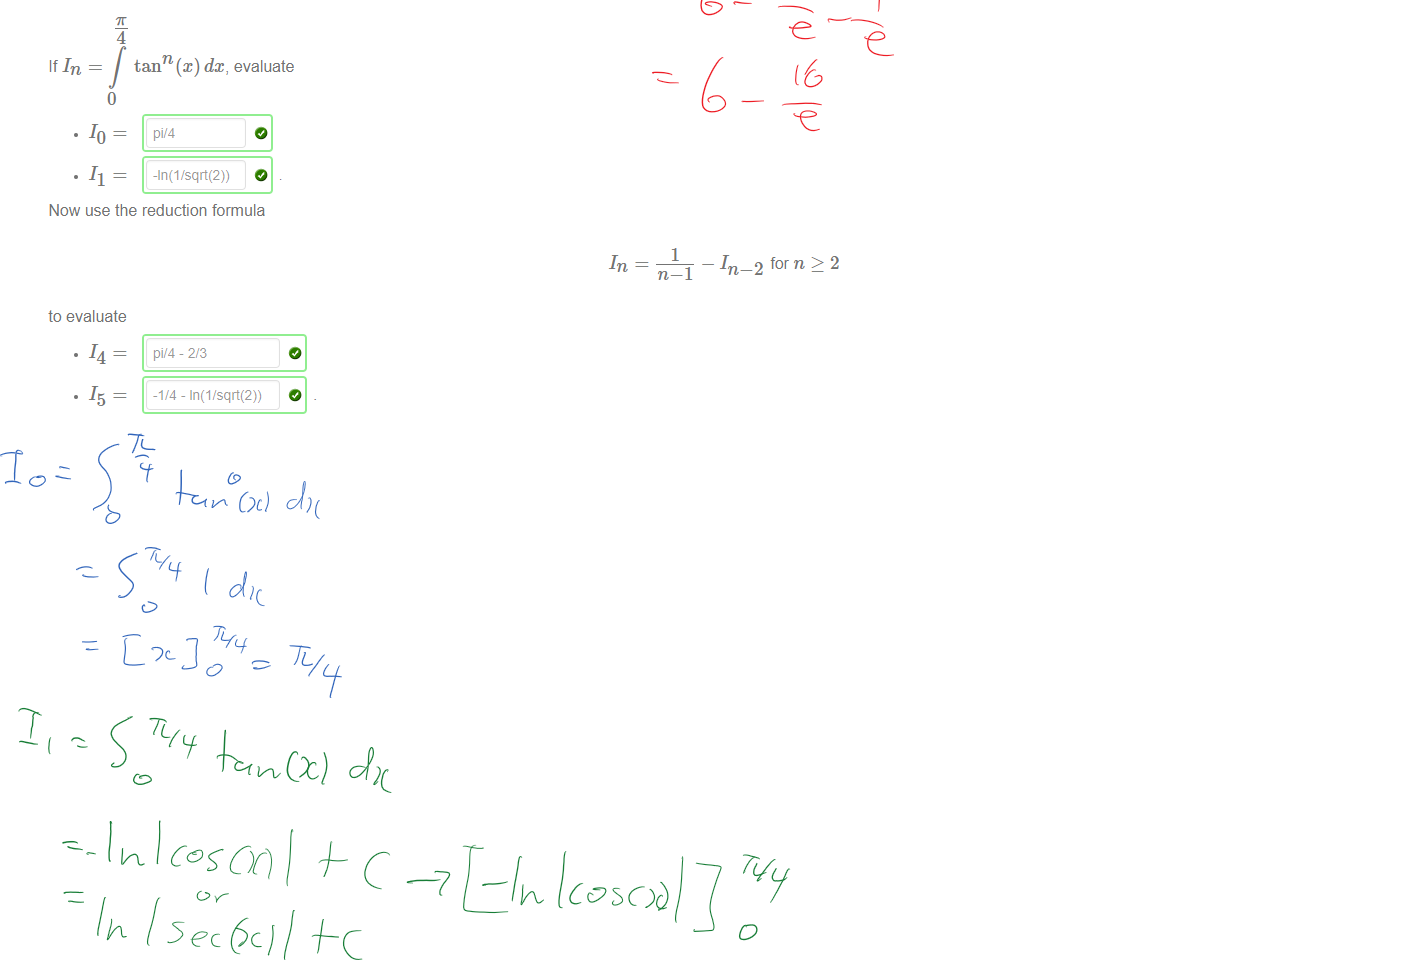 6 - /e - 1/e
= 6 - 16/e
If Iₙ = ∫₀^(π/4) tanⁿ(x) dx, evaluate
• I₀ = pi/4
• I₁ = -ln(1/sqrt(2)) .
Now use the reduction formula
Iₙ = 1/(n−1) − Iₙ₋₂ for n ≥ 2
to evaluate
• I₄ = pi/4 - 2/3
• I₅ = -1/4 - ln(1/sqrt(2)) .
I₀ = ∫₀^(π/4) tan⁰(x) dx
= ∫₀^(π/4) 1 dx
= [x]₀^(π/4) = π/4
I₁ = ∫₀^(π/4) tan(x) dx
= -ln|cos(x)| + C → [-ln|cos(x)|]₀^(π/4)
or
= ln|sec(x)| + C